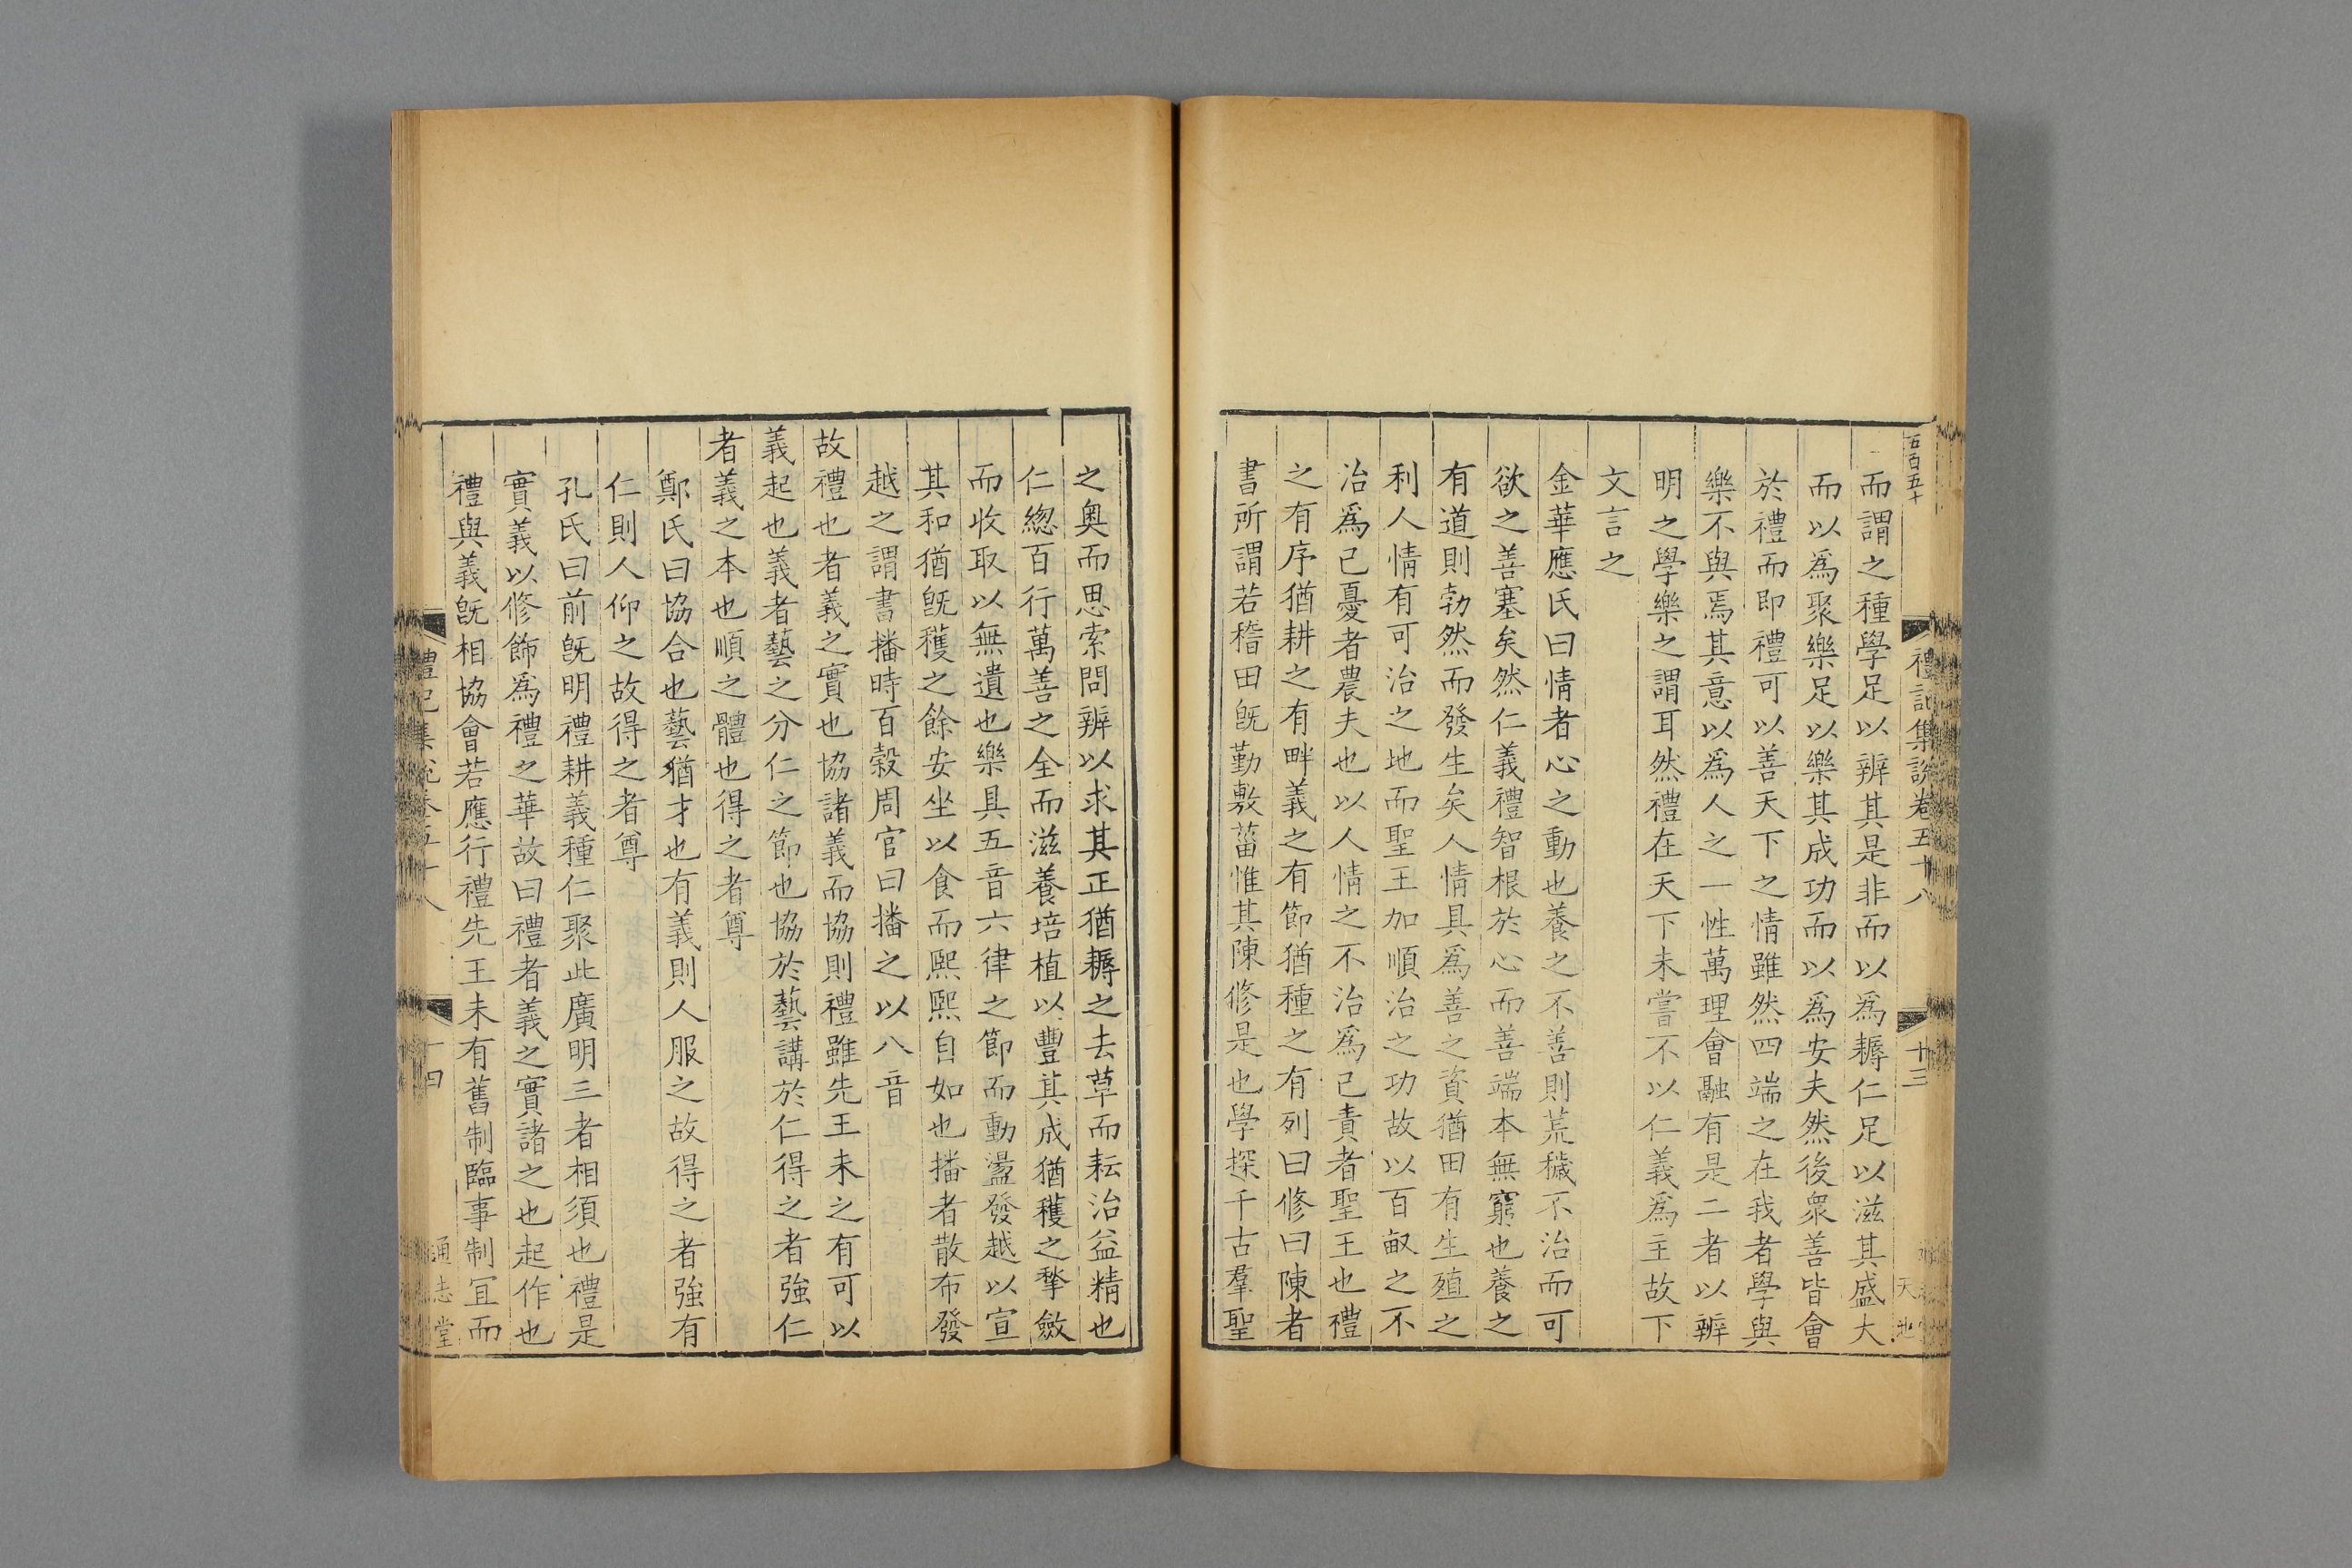 五百五十
禮記集說卷五十八
十三
而謂之種學足以辨其是非而以爲耨仁足以滋其盛大
而以爲聚樂足以樂其成功而以爲安夫然後衆善皆會
於禮而即禮可以善天下之情雖然四端之在我者學與
樂不與焉其意以爲人之一性萬理會融有是二者以辨
明之學樂之謂耳然禮在天下未嘗不以仁義爲主故下
文言之
金華應氏曰情者心之動也養之不善則荒穢不治而可
欲之善塞矣然仁義禮智根於心而善端本無窮也養之
有道則勃然而發生矣人情具爲善之資猶田有生殖之
利人情有可治之地而聖王加順治之功故以百畝之不
治爲己憂者農夫也以人情之不治爲己責者聖王也禮
之有序猶耕之有畔義之有節猶種之有列曰修曰陳者
書所謂若稽田旣勤敷菑惟其陳修是也學探千古羣聖
之奧而思索問辨以求其正猶耨之去草而耘治益精也
仁緫百行萬善之全而滋養培植以豐其成猶穫之揫斂
而收取以無遺也樂具五音六律之節而動盪發越以宣
其和猶旣穫之餘安坐以食而熙熙自如也播者散布發
越之謂書播時百穀周官曰播之以八音
故禮也者義之實也協諸義而協則禮雖先王未之有可以
義起也義者藝之分仁之節也協於藝講於仁得之者強仁
者義之本也順之體也得之者尊
鄭氏曰協合也藝猶才也有義則人服之故得之者強有
仁則人仰之故得之者尊
孔氏曰前旣明禮耕義種仁聚此廣明三者相須也禮是
實義以修飾爲禮之華故曰禮者義之實諸之也起作也
禮與義旣相協會若應行禮先王未有舊制臨事制宜而
禮記集說卷五十八
十四
通志堂